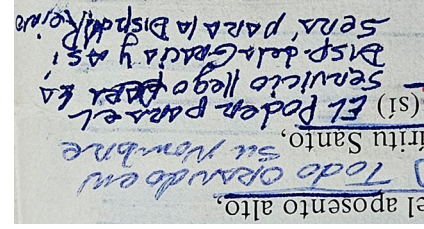 el aposento alto,
) Todo orando en
su Nombre
íritu Santo,
(sí) EL Poder para el
Servicio llego LA
Disp. de la Gracia y así
Será, para la Disp. del Reino